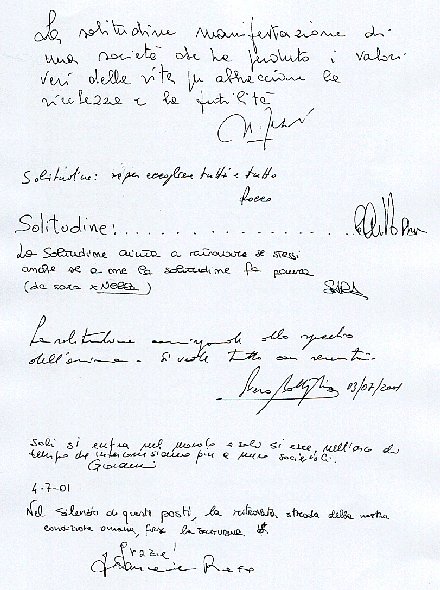 La solitudine manifestazione di
una società che ha perduto i valori
veri della vita per abbracciare la
ricchezza e la futilità
Solitudine: saper accogliere tutti e tutto
Rocco
Solitudine: . . . . . . . . . . . . . . . . . . .
La solitudine aiuta a ritrovare se stessi
anche se a me la solitudine fa paura
(da sara x
La solitudine
dell'anima. Si vede tutto
03/07/2001
Soli si entra nel mondo e soli si esce nell'arco di
tempo che intercorre siamo più o meno socievoli.
Giovanni
4-7-01
Nel silenzio di questi posti, la ritrovata strada della nostra
condizione umana, forse la
Grazie!
Francesco